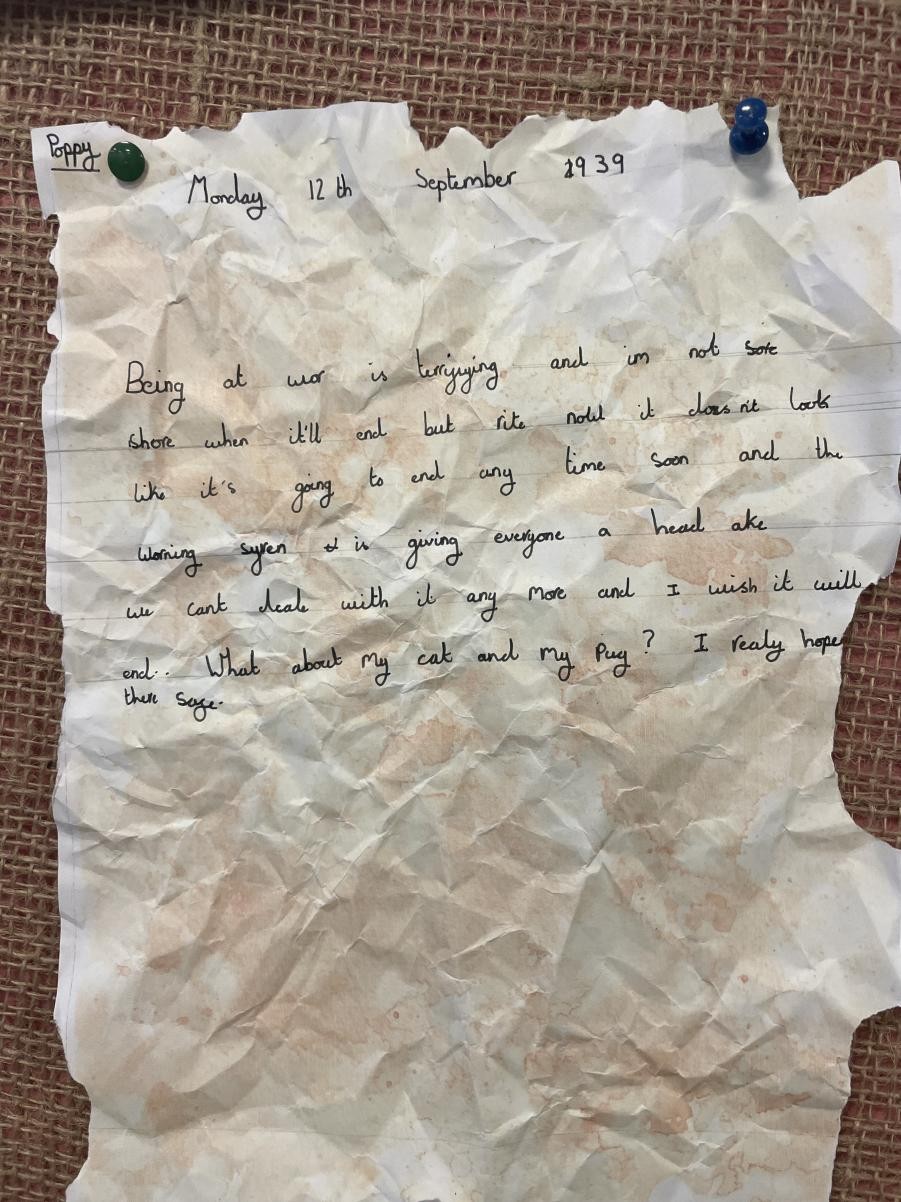 Poppy
Monday 12th September 1939
Being at war is terrifying and im not sore
shore when it'll end but rite now it does n't look
like it's going to end any time soon and the
worning syren is giving everyone a head ake
we cant deale with it any more and I wish it will
end.. What about my cat and my Pug? I realy hope
there safe.